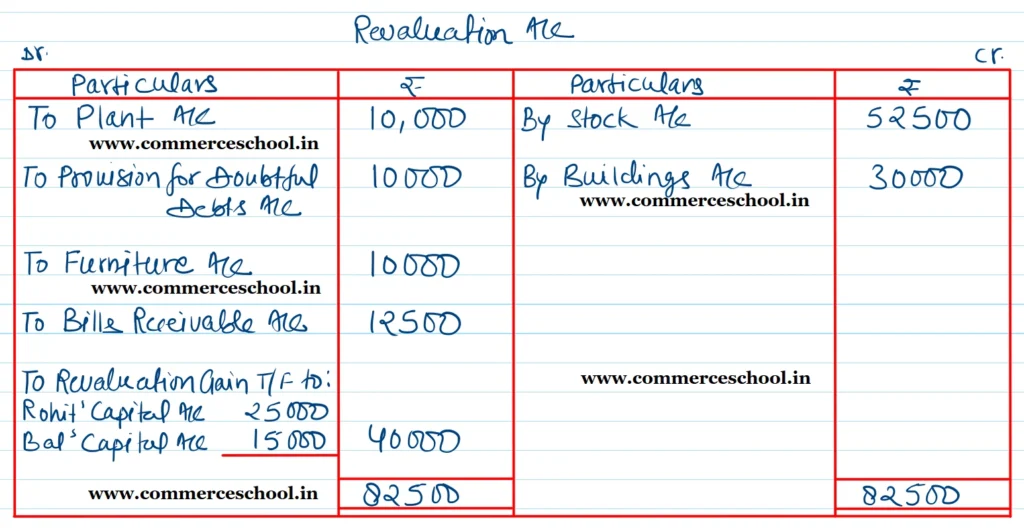 Revaluation A/c
Dr. Cr.
Particulars ₹ Particulars ₹
To Plant A/c 10,000 By Stock A/c 52500
www.commerceschool.in
To Provision for Doubtful 10000 By Buildings A/c 30000
Debts A/c www.commerceschool.in
To Furniture A/c 10000
www.commerceschool.in
To Bills Receivable A/c 12500
To Revaluation Gain T/F to: www.commerceschool.in
Rohit' Capital A/c 25000
Bal's Capital A/c 15000 40000
www.commerceschool.in 82500 82500